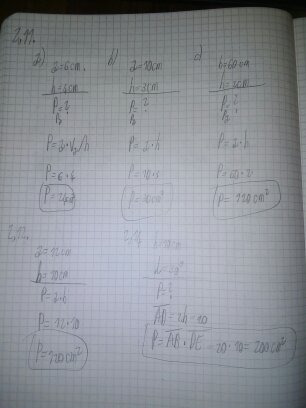 2,11.
a) a=6cm
h=4cm
P=?
P=a·h
P=6·4
b) a=10cm
h=3cm
P=?
P=a·h
P=10·3
P=30cm²
c) h=60cm
P=?
P=a·h
P=60·2
P=120cm²
2,12.
a=12cm
h=10cm
P=a·h
P=12·10
P=120cm²
h=10cm
P=?
AD=2h=20
P=AB·DE=20·10=200cm²